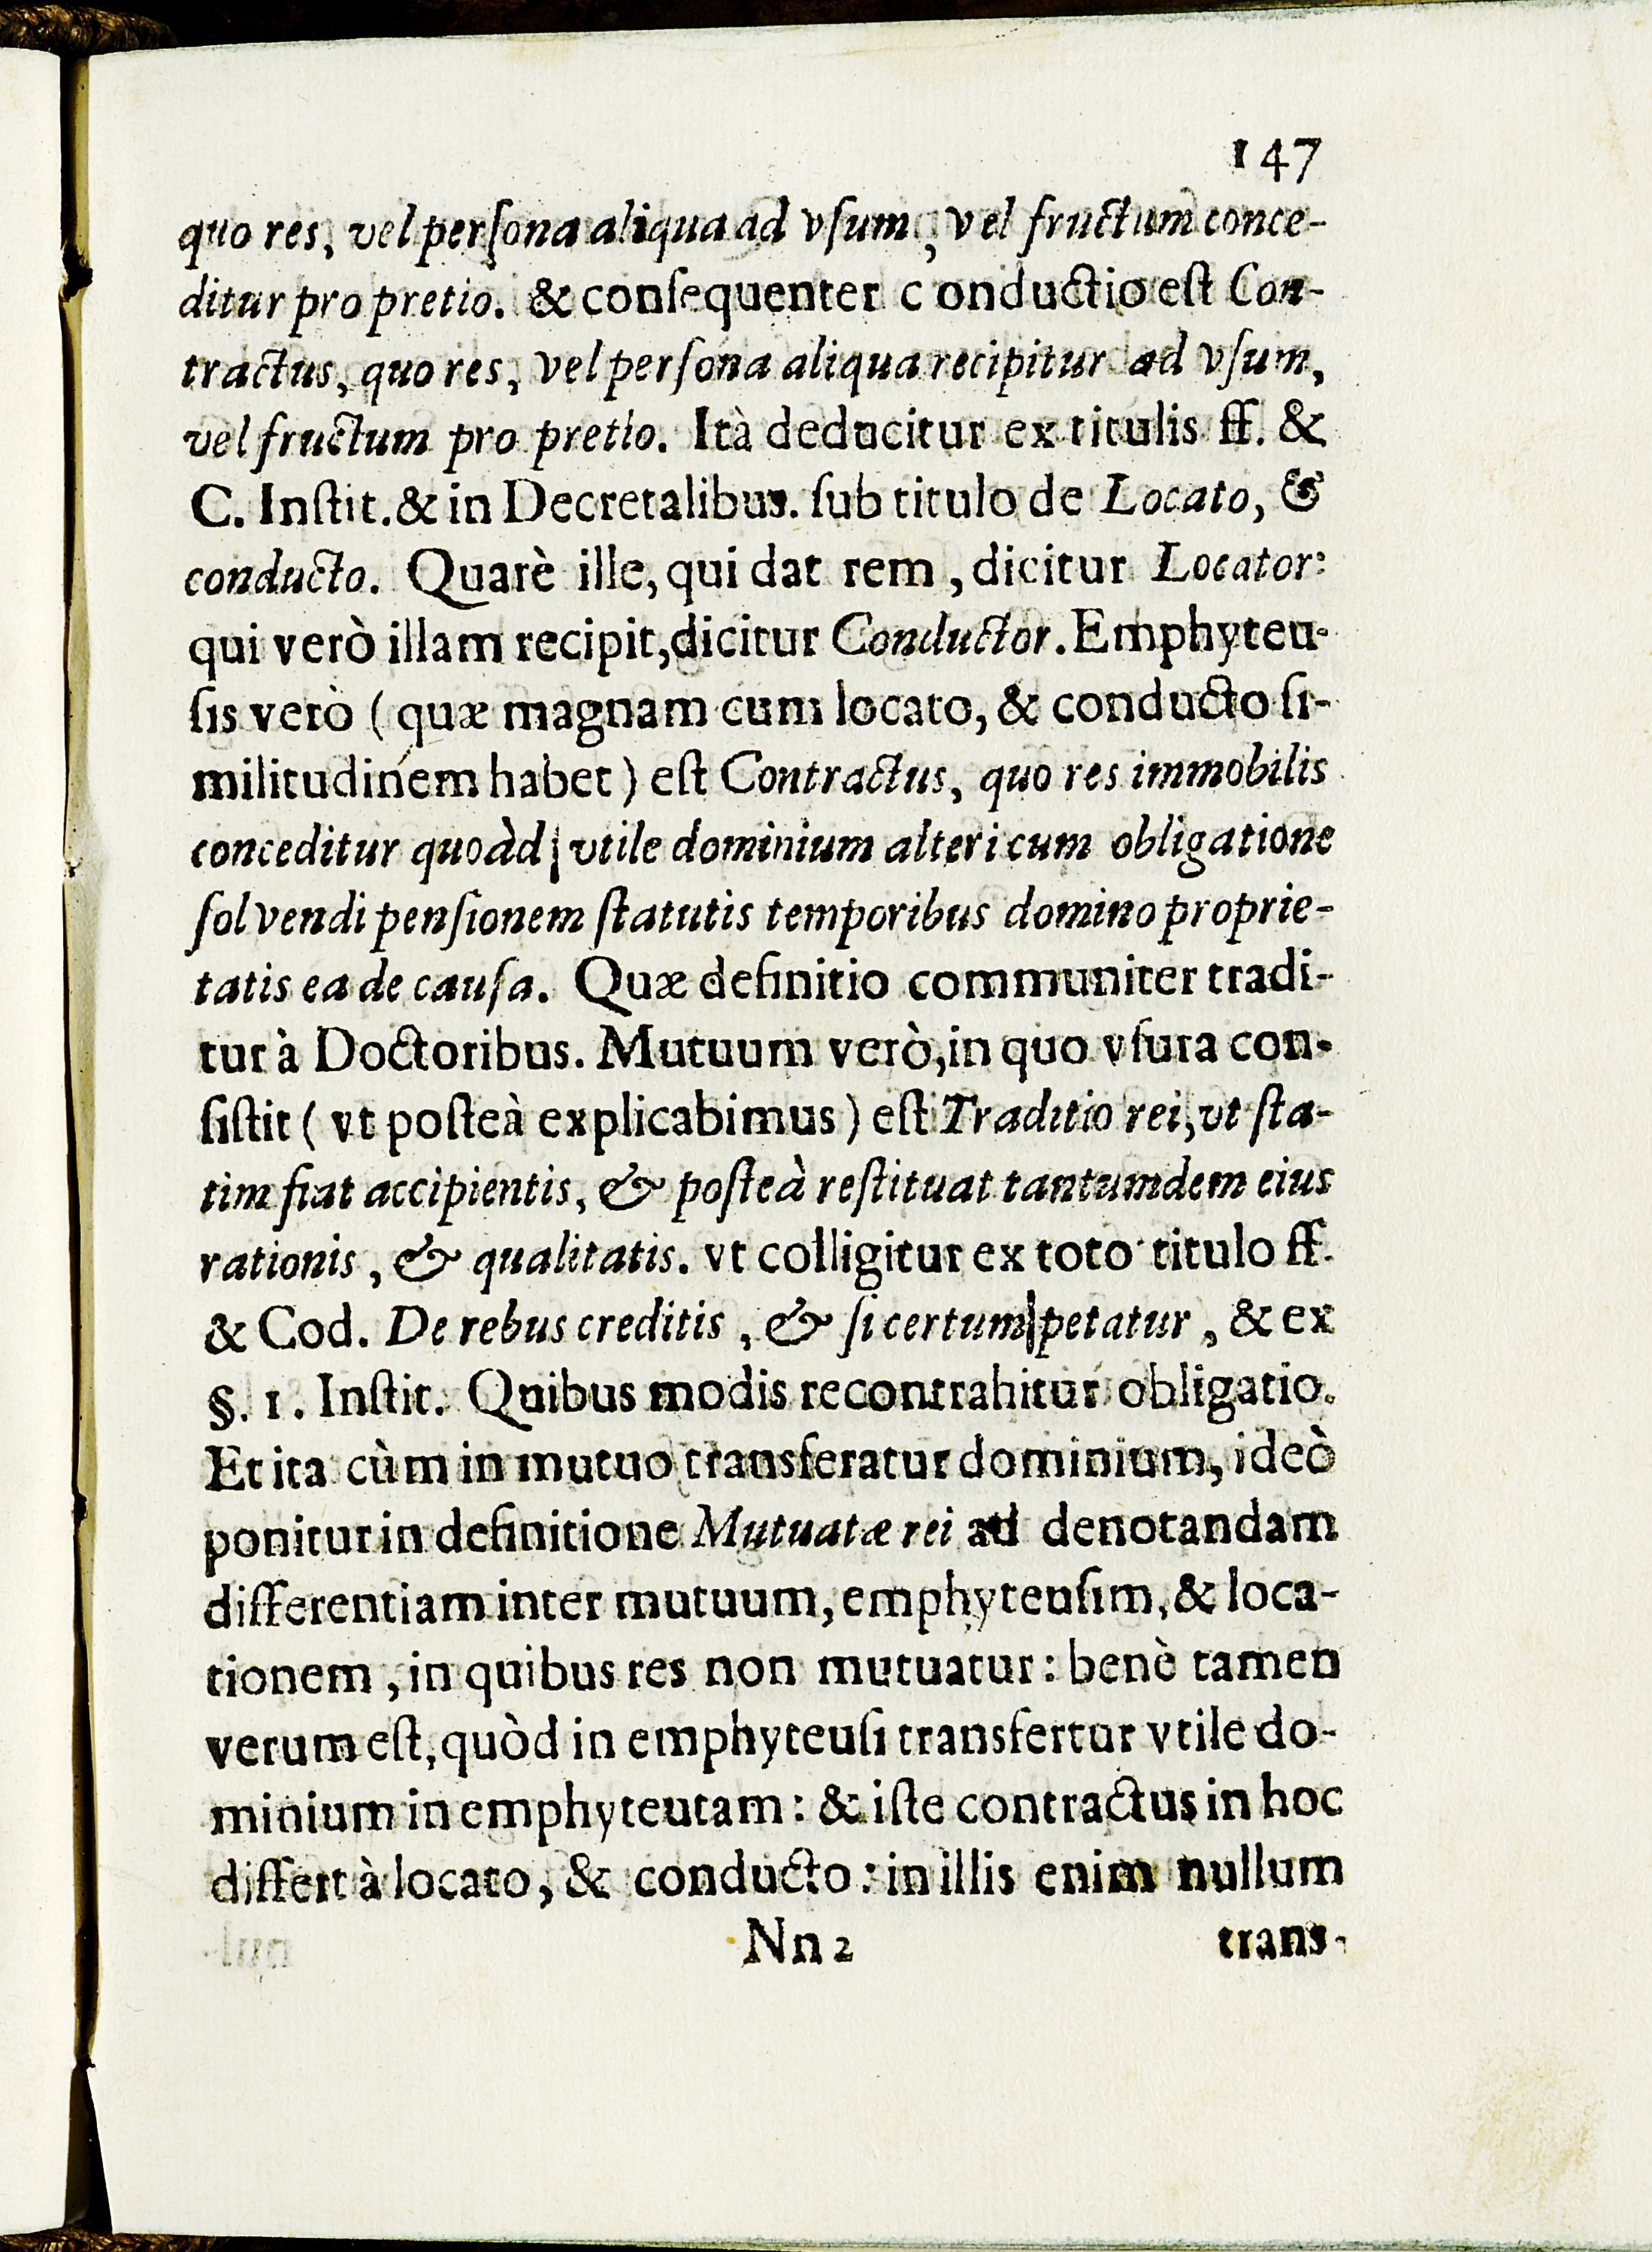 147
quo res, vel perſona aliqua ad vſum, vel fructum conce-
ditur pro pretio. & conſequenter c onductio eſt Con-
tractus, quo res, vel perſona aliqua recipitur ad vſum,
vel fructum pro pretio. Ità deducitur ex titulis ff. &
C. Inſtit. & in Decretalibus. ſub titulo de Locato, &
conducto. Quarè ille, qui dat rem, dicitur Locator:
qui verò illam recipit, dicitur Conductor. Emphyteu-
ſis verò (quæ magnam cum locato, & conducto ſi-
militudinem habet) eſt Contractus, quo res immobilis
conceditur quoàd vtile dominium alteri cum obligatione
ſolvendi penſionem ſtatutis temporibus domino proprie-
tatis ea de cauſa. Quæ definitio communiter tradi-
tur à Doctoribus. Mutuum verò, in quo vſura con-
ſiſtit (vt poſteà explicabimus) eſt Traditio rei, vt ſta-
tim fiat accipientis, & poſteà reſtituat tantumdem eius
rationis, & qualitatis. vt colligitur ex toto titulo ff.
& Cod. De rebus creditis, & ſi certum petatur, & ex
§. 1. Inſtit. Quibus modis recontrahitur obligatio.
Et ita cùm in mutuo transferatur dominium, ideò
ponitur in definitione Mutuatæ rei ad denotandam
differentiam inter mutuum, emphyteuſim, & loca-
tionem, in quibus res non mutuatur: benè tamen
verum eſt, quòd in emphyteuſi transfertur vtile do-
minium in emphyteutam: & iſte contractus in hoc
differt à locato, & conducto: in illis enim nullum
Nn 2 trans-